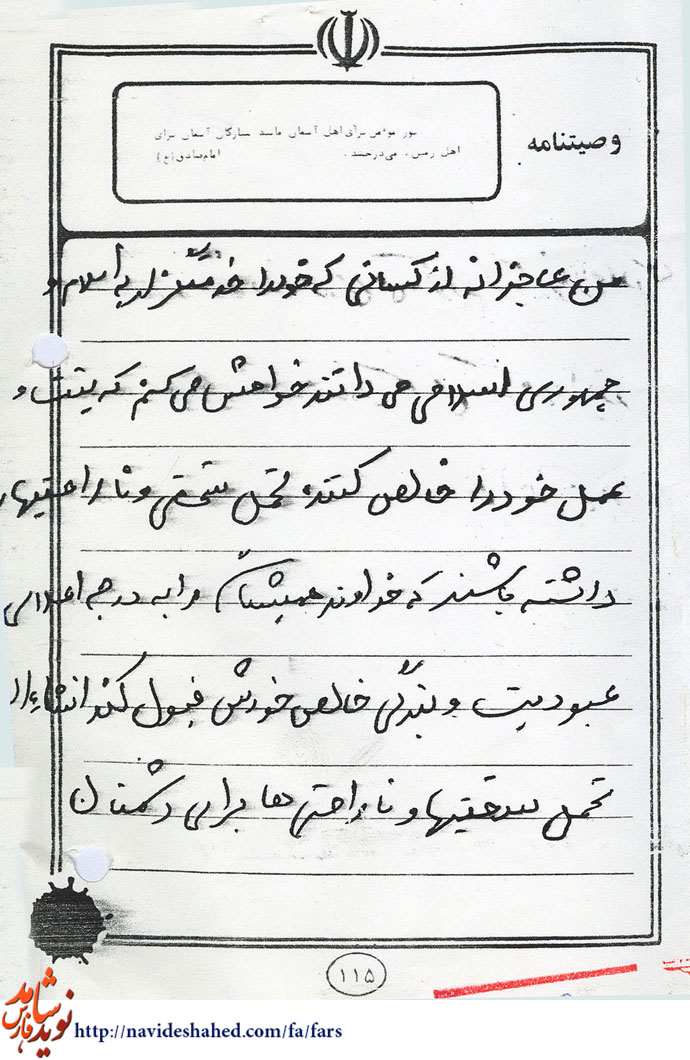 وصیتنامه
نور مؤمن برای اهل آسمان مانند ستارگان آسمان برای
اهل زمین، می‌درخشد. امام صادق (ع)
من عاجزانه از کسانی که خود را خدمتگزار به اسلام و
جمهوری اسلامی می دانند خواهش می کنم که نیت و
عمل خود را خالص کنند، تحمل سختی و ناراحتیها
داشته باشند که خداوند همیشان را به درجه اعلای
عبودیت و بندگی خالص خودش قبول کند انشاءالله
تحمل سختیها و ناراحتی ها برای دشمنان
۱۱۵
نوید شاهد فارس
http://navideshahed.com/fa/fars